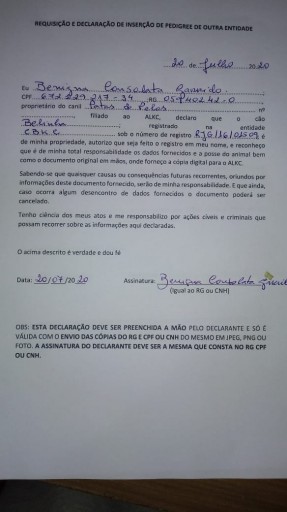 REQUISIÇÃO E DECLARAÇÃO DE INSERÇÃO DE PEDIGREE DE OUTRA ENTIDADE
20 de Julho 2020
Eu Benigna Consolata
CPF RG
proprietário do canil Patas & Pelos nº
filiado ao ALKC, declara que o cão
Belinha, registrado na entidade
CBKC sob o número de registro
de minha propriedade, autorizo que seja feito o registro em meu nome, e reconheço
que é de minha total responsabilidade os dados fornecidos e a posse do animal bem
como o documento original em mãos, onde forneço a cópia digital para o ALKC.
Sabendo-se que quaisquer causas ou consequências futuras recorrentes, oriundos por
informações deste documento fornecido, serão de minha responsabilidade. E que ainda,
caso ocorra algum desencontro de dados fornecidos o documento poderá ser
cancelado.
Tenho ciência dos meus atos e me responsabilizo por ações civeis e criminais que
possam recorrer sobre as informações aqui declaradas.
O acima descrito é verdade e dou fé
Data: 20/07/2020 Assinatura: Benigna Consolata
(Igual ao RG ou CNH)
OBS: ESTA DECLARAÇÃO DEVE SER PREENCHIDA A MÃO PELO DECLARANTE E SÓ É
VÁLIDA COM O ENVIO DAS CÓPIAS DO RG E CPF OU CNH DO MESMO EM JPEG, PNG OU
FOTO. A ASSINATURA DO DECLARANTE DEVE SER A MESMA QUE CONSTA NO RG CPF
OU CNH.